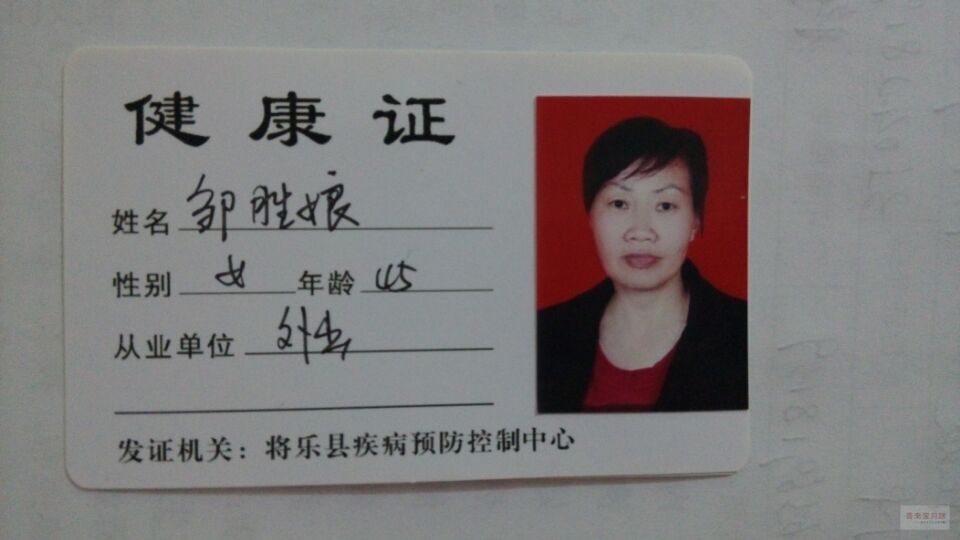 健康证
姓名 邹胜娘
性别 女 年龄 45
从业单位 外出
发证机关：将乐县疾病预防控制中心